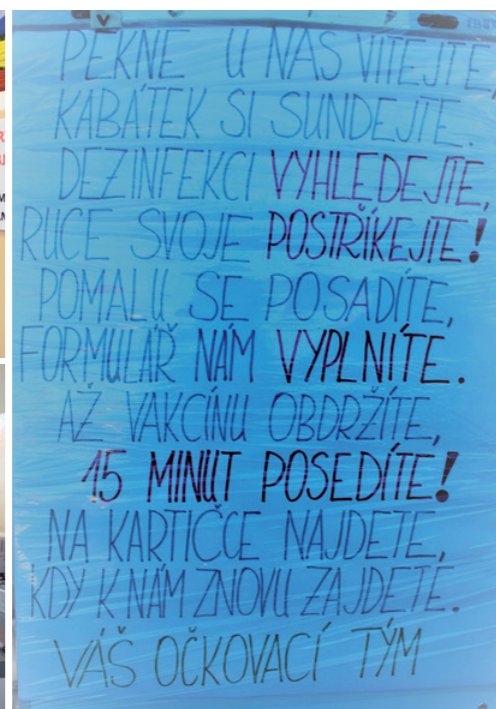 PĚKNĚ U NÁS VÍTEJTE,
KABÁTEK SI SUNDEJTE.
DEZINFEKCI VYHLEDEJTE,
RUCE SVOJE POSTŘÍKEJTE!
POMALU SE POSADÍTE,
FORMULÁŘ NÁM VYPLNÍTE.
AŽ VAKCÍNU OBDRŽÍTE,
15 MINUT POSEDÍTE!
NA KARTIČCE NAJDETE,
KDY K NÁM ZNOVU ZAJDETE.
VÁŠ OČKOVACÍ TÝM